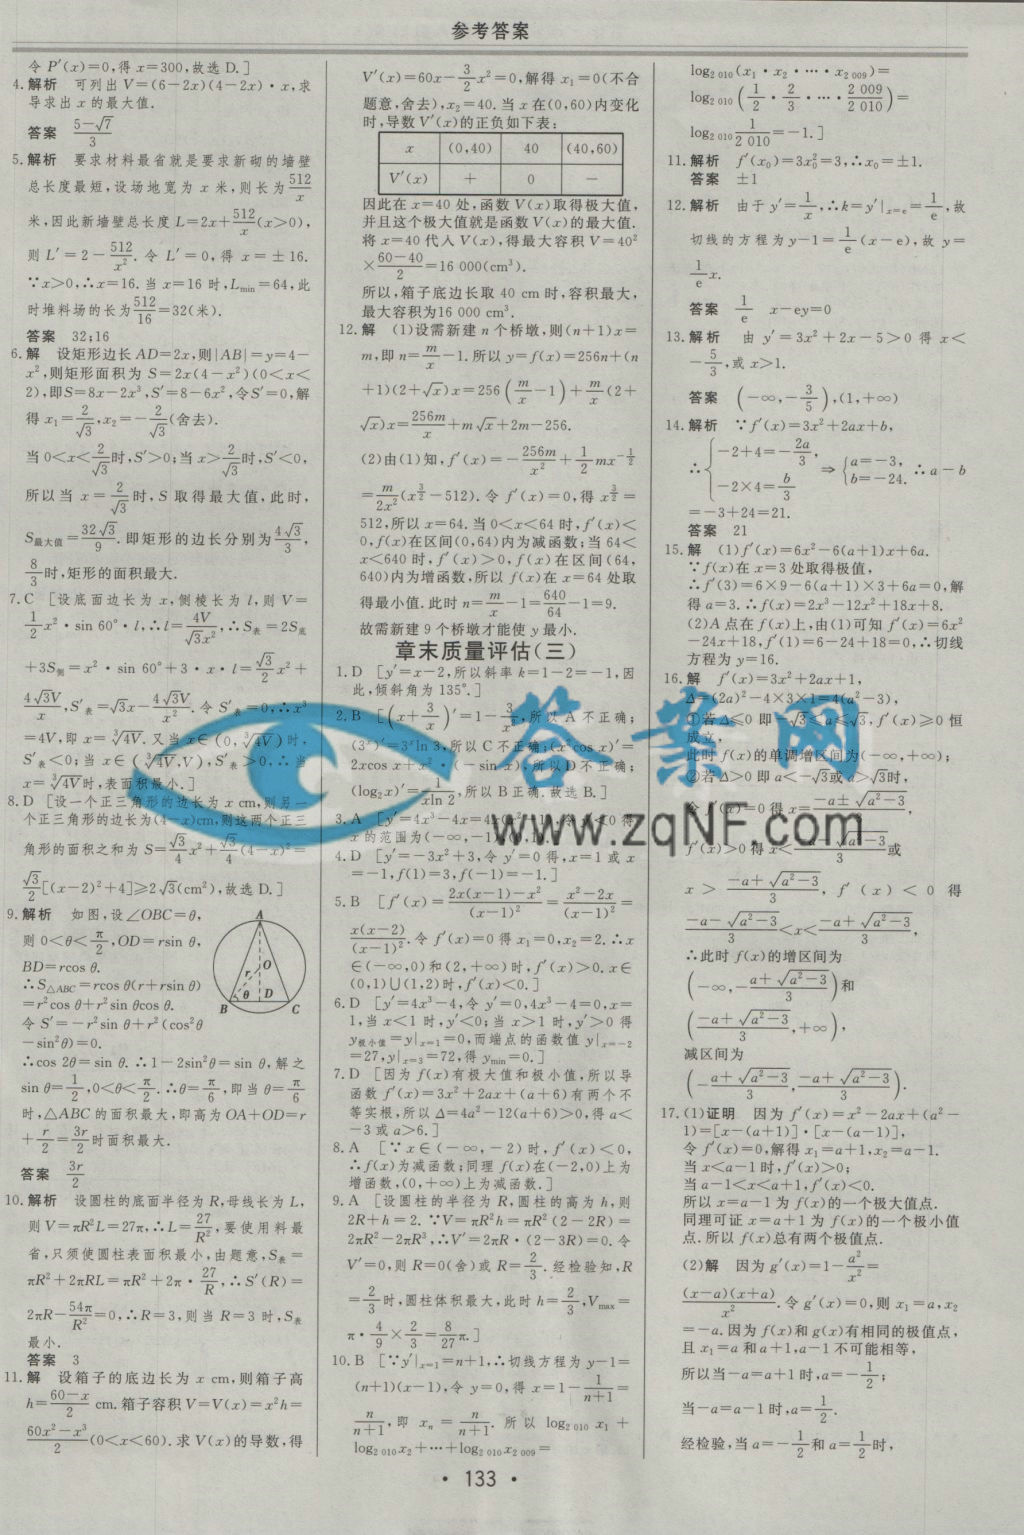 参考答案
令 P′(x)=0,得 x=300,故选 D.]
4.解析 可列出 V=(6-2x)(4-2x)·x,求
导求出 x 的最大值.
答案 (5-√7)/3
5.解析 要求材料最省就是要求新砌的墙壁
总长度最短,设场地宽为 x 米,则长为 512/x
米,因此新墙壁总长度 L=2x+512/x(x>0),
则 L′=2-512/x². 令 L′=0,得 x=±16.
∵x>0,∴x=16.当 x=16 时,Lmin=64,此
时堆料场的长为 512/16=32(米).
答案 32;16
6.解 设矩形边长 AD=2x,则|AB|=y=4-
x²,则矩形面积为 S=2x(4-x²)(0<x<
2),即S=8x-2x³,S′=8-6x²,令S′=0,解
得 x₁=2/√3,x₂=-2/√3(舍去).
当 0<x<2/√3时,S′>0;当 x>2/√3时,S′<0,
所以当 x=2/√3时,S 取得最大值,此时,
S最大值=32√3/9.即矩形的边长分别为4√3/3,
8/3时,矩形的面积最大.
7.C [设底面边长为 x,侧棱长为 l,则 V=
1/2x²·sin 60°·l,∴l=4V/(√3x²),∴S表=2S底
+3S侧=x²·sin 60°+3·x·l=√3/2x²+
4√3V/x,S′表=√3x-4√3V/x².令 S′表=0,∴x³
=4V,即 x=∛4V.又当 x∈(0,∛4V)时,
S′表<0;当 x∈(∛4V,V),S′表>0,∴当
x=∛4V时,表面积最小.]
8.D [设一个正三角形的边长为 x cm,则另一
个正三角形的边长为(4-x)cm,则这两个正三
角形的面积之和为 S=√3/4x²+√3/4(4-x)²=
√3/2[(x-2)²+4]≥2√3(cm²),故选 D.]
9.解析 如图,设∠OBC=θ,
则 0<θ<π/2,OD=rsin θ,
BD=rcos θ.
∴S△ABC=rcos θ(r+rsin θ)
=r²cos θ+r²sin θcos θ.
令 S′=-r²sin θ+r²(cos²θ
-sin²θ)=0.
A
r
O
B
θ
D
C
∴cos 2θ=sin θ.∴1-2sin²θ=sin θ,解之
sin θ=1/2,0<θ<π/2.∴θ=π/6,即当 θ=π/6
时,△ABC 的面积最大,即高为 OA+OD=r
+r/2=3r/2时面积最大.
答案 3r/2
10.解析 设圆柱的底面半径为 R,母线长为 L,
则 V=πR²L=27π,∴L=27/R²,要使用料最
省,只须使圆柱表面积最小,由题意,S表=
πR²+2πRL=πR²+2π·27/R,∴S′(R)=
2πR-54π/R²=0,∴R=3,则当 R=3 时,S表
最小.
答案 3
11.解 设箱子的底边长为 x cm,则箱子高
h=(60-x)/2 cm.箱子容积 V=V(x)=x²h=
(60x²-x³)/2(0<x<60).求 V(x)的导数,得
V′(x)=60x-3/2x²=0,解得 x₁=0(不合
题意,舍去),x₂=40.当 x 在(0,60)内变化
时,导数 V′(x)的正负如下表:
x (0,40) 40 (40,60)
V′(x) + 0 -
因此在 x=40 处,函数 V(x)取得极大值,
并且这个极大值就是函数 V(x)的最大值.
将 x=40 代入 V(x),得最大容积 V=40²
×(60-40)/2=16 000(cm³).
所以,箱子底边长取 40 cm 时,容积最大,
最大容积为16 000 cm³.
12.解 (1)设需新建 n 个桥墩,则(n+1)x=
m,即 n=m/x-1.所以 y=f(x)=256n+(n
+1)(2+√x)x=256(m/x-1)+m/x(2+
√x)x=256m/x+m√x+2m-256.
(2)由(1)知,f′(x)=-256m/x²+1/2mx^(-1/2)
=m/2x²(x^(3/2)-512).令 f′(x)=0,得 x^(3/2)=
512,所以 x=64.当 0<x<64 时,f′(x)<
0,f(x)在区间(0,64)内为减函数;当 64<
x<640 时,f′(x)>0,f(x)在区间(64,
640)内为增函数,所以 f(x)在 x=64 处取
得最小值.此时 n=m/x-1=640/64-1=9.
故需新建 9 个桥墩才能使 y 最小.
章末质量评估(三)
1.D [y′=x-2,所以斜率 k=1-2=-1,因
此,倾斜角为 135°.]
2.B [(x+3/x)′=1-3/x²,所以 A 不正确;
(3ˣ)′=3ˣln 3,所以 C 不正确;(x²cos x)′=
2xcos x+x²·(-sin x),所以 D 不正确;
(log₂x)′=1/(xln 2),所以 B 正确.故选 B.]
3.A [y′=4x³-4x=4x(x²-1),令 y′<0 得
x 的范围为(-∞,-1),(0,1).]
4.D [y′=-3x²+3,令 y′=0 得,x=1 或 x
=-1,f(1)=3,f(-1)=-1.]
5.B [f′(x)=(2x(x-1)-x²)/(x-1)²=(x²-2x)/(x-1)²=
x(x-2)/(x-1)².令 f′(x)=0 得 x₁=0,x₂=2.∴x
∈(-∞,0)和(2,+∞)时,f′(x)>0.x∈
(0,1)∪(1,2)时,f′(x)<0.]
6.D [y′=4x³-4,令 y′=0,4x³-4=0,x=
1,当 x<1 时,y′<0;当 x>1 时,y′>0 得
y极小值=y|x=1=0,而端点的函数值 y|x=-2
=27,y|x=3=72,得 ymin=0.]
7.D [因为 f(x)有极大值和极小值,所以导
函数 f′(x)=3x²+2ax+(a+6)有两个不
等实根,所以 Δ=4a²-12(a+6)>0,得 a<
-3 或 a>6.]
8.A [∵x∈(-∞,-2)时,f′(x)<0,
∴f(x)为减函数;同理 f(x)在(-2,0)上为
增函数,(0,+∞)上为减函数.]
9.A [设圆柱的半径为 R,圆柱的高为 h,则
2R+h=2.∵V=πR²h=πR²(2-2R)=
2πR²-2πR³,∴V′=2πR·(2-3R)=0.令
V′=0,则 R=0(舍)或 R=2/3.经检验知,R
=2/3时,圆柱体积最大,此时 h=2/3,Vmax=
π·4/9×2/3=8/27π.]
10.B [∵y′|x=1=n+1,∴切线方程为 y-1=
(n+1)(x-1),令 y=0,得 x=1-1/(n+1)=
n/(n+1),即 xₙ=n/(n+1).所以 log₂₀₁₀x₁+
log₂₀₁₀x₂+…+log₂₀₁₀x₂₀₀₉=
log₂₀₁₀(x₁·x₂·…·x₂₀₀₉)=
log₂₀₁₀(1/2·2/3·…·2 009/2 010)=
log₂₀₁₀ 1/2 010=-1.]
11.解析 f′(x₀)=3x₀²=3,∴x₀=±1.
答案 ±1
12.解析 由于 y′=1/x,∴k=y′|x=e=1/e,故
切线的方程为 y-1=1/e(x-e),故 y=
1/e x.
答案 1/e x-ey=0
13.解析 由 y′=3x²+2x-5>0 得 x<
-5/3,或 x>1.
答案 (-∞,-3/5),(1,+∞)
14.解析 ∵f′(x)=3x²+2ax+b,
∴{-2+4=-2a/3, -2×4=b/3 ⇒{a=-3, b=-24. ∴a-b
=-3+24=21.
答案 21
15.解 (1)f′(x)=6x²-6(a+1)x+6a.
∵f(x)在 x=3 处取得极值,
∴f′(3)=6×9-6(a+1)×3+6a=0,解
得 a=3.∴f(x)=2x³-12x²+18x+8.
(2)A 点在 f(x)上,由(1)可知 f′(x)=6x²
-24x+18,f′(1)=6-24+18=0,∴切线
方程为 y=16.
16.解 f′(x)=3x²+2ax+1,
Δ=(2a)²-4×3×1=4(a²-3),
①若 Δ≤0 即-√3≤a≤√3,f′(x)≥0 恒
成立,
此时 f(x)的单调增区间为(-∞,+∞);
②若 Δ>0 即 a<-√3或 a>√3时,
令 f′(x)=0 得 x=(-a±√(a²-3))/3,
f′(x)>0 得 x<(-a-√(a²-3))/3或
x>(-a+√(a²-3))/3,f′(x)<0 得
(-a-√(a²-3))/3<x<(-a+√(a²-3))/3,
∴此时 f(x)的增区间为
(-∞,-(a+√(a²-3))/3)和
((-a+√(a²-3))/3,+∞),
减区间为
(-(a+√(a²-3))/3,(-a+√(a²-3))/3).
17.(1)证明 因为 f′(x)=x²-2ax+(a²-
1)=[x-(a+1)]·[x-(a-1)],
令 f′(x)=0,解得 x₁=a+1,x₂=a-1.
当 x<a-1 时,f′(x)>0;
当 a-1<x<a+1,f′(x)<0.
所以 x=a-1 为 f(x)的一个极大值点.
同理可证 x=a+1 为 f(x)的一个极小值
点.所以 f(x)总有两个极值点.
(2)解 因为 g′(x)=1-a²/x²=
(x-a)(x+a)/x².令 g′(x)=0,则 x₁=a,x₂
=-a.因为 f(x)和 g(x)有相同的极值点,
且 x₁=a 和 a+1,a-1 不可能相等,
所以当-a=a+1 时,a=-1/2;
当-a=a-1 时,a=1/2.
经检验,当 a=-1/2和 a=1/2时,
· 133 ·
答案网
www.zqNF.com